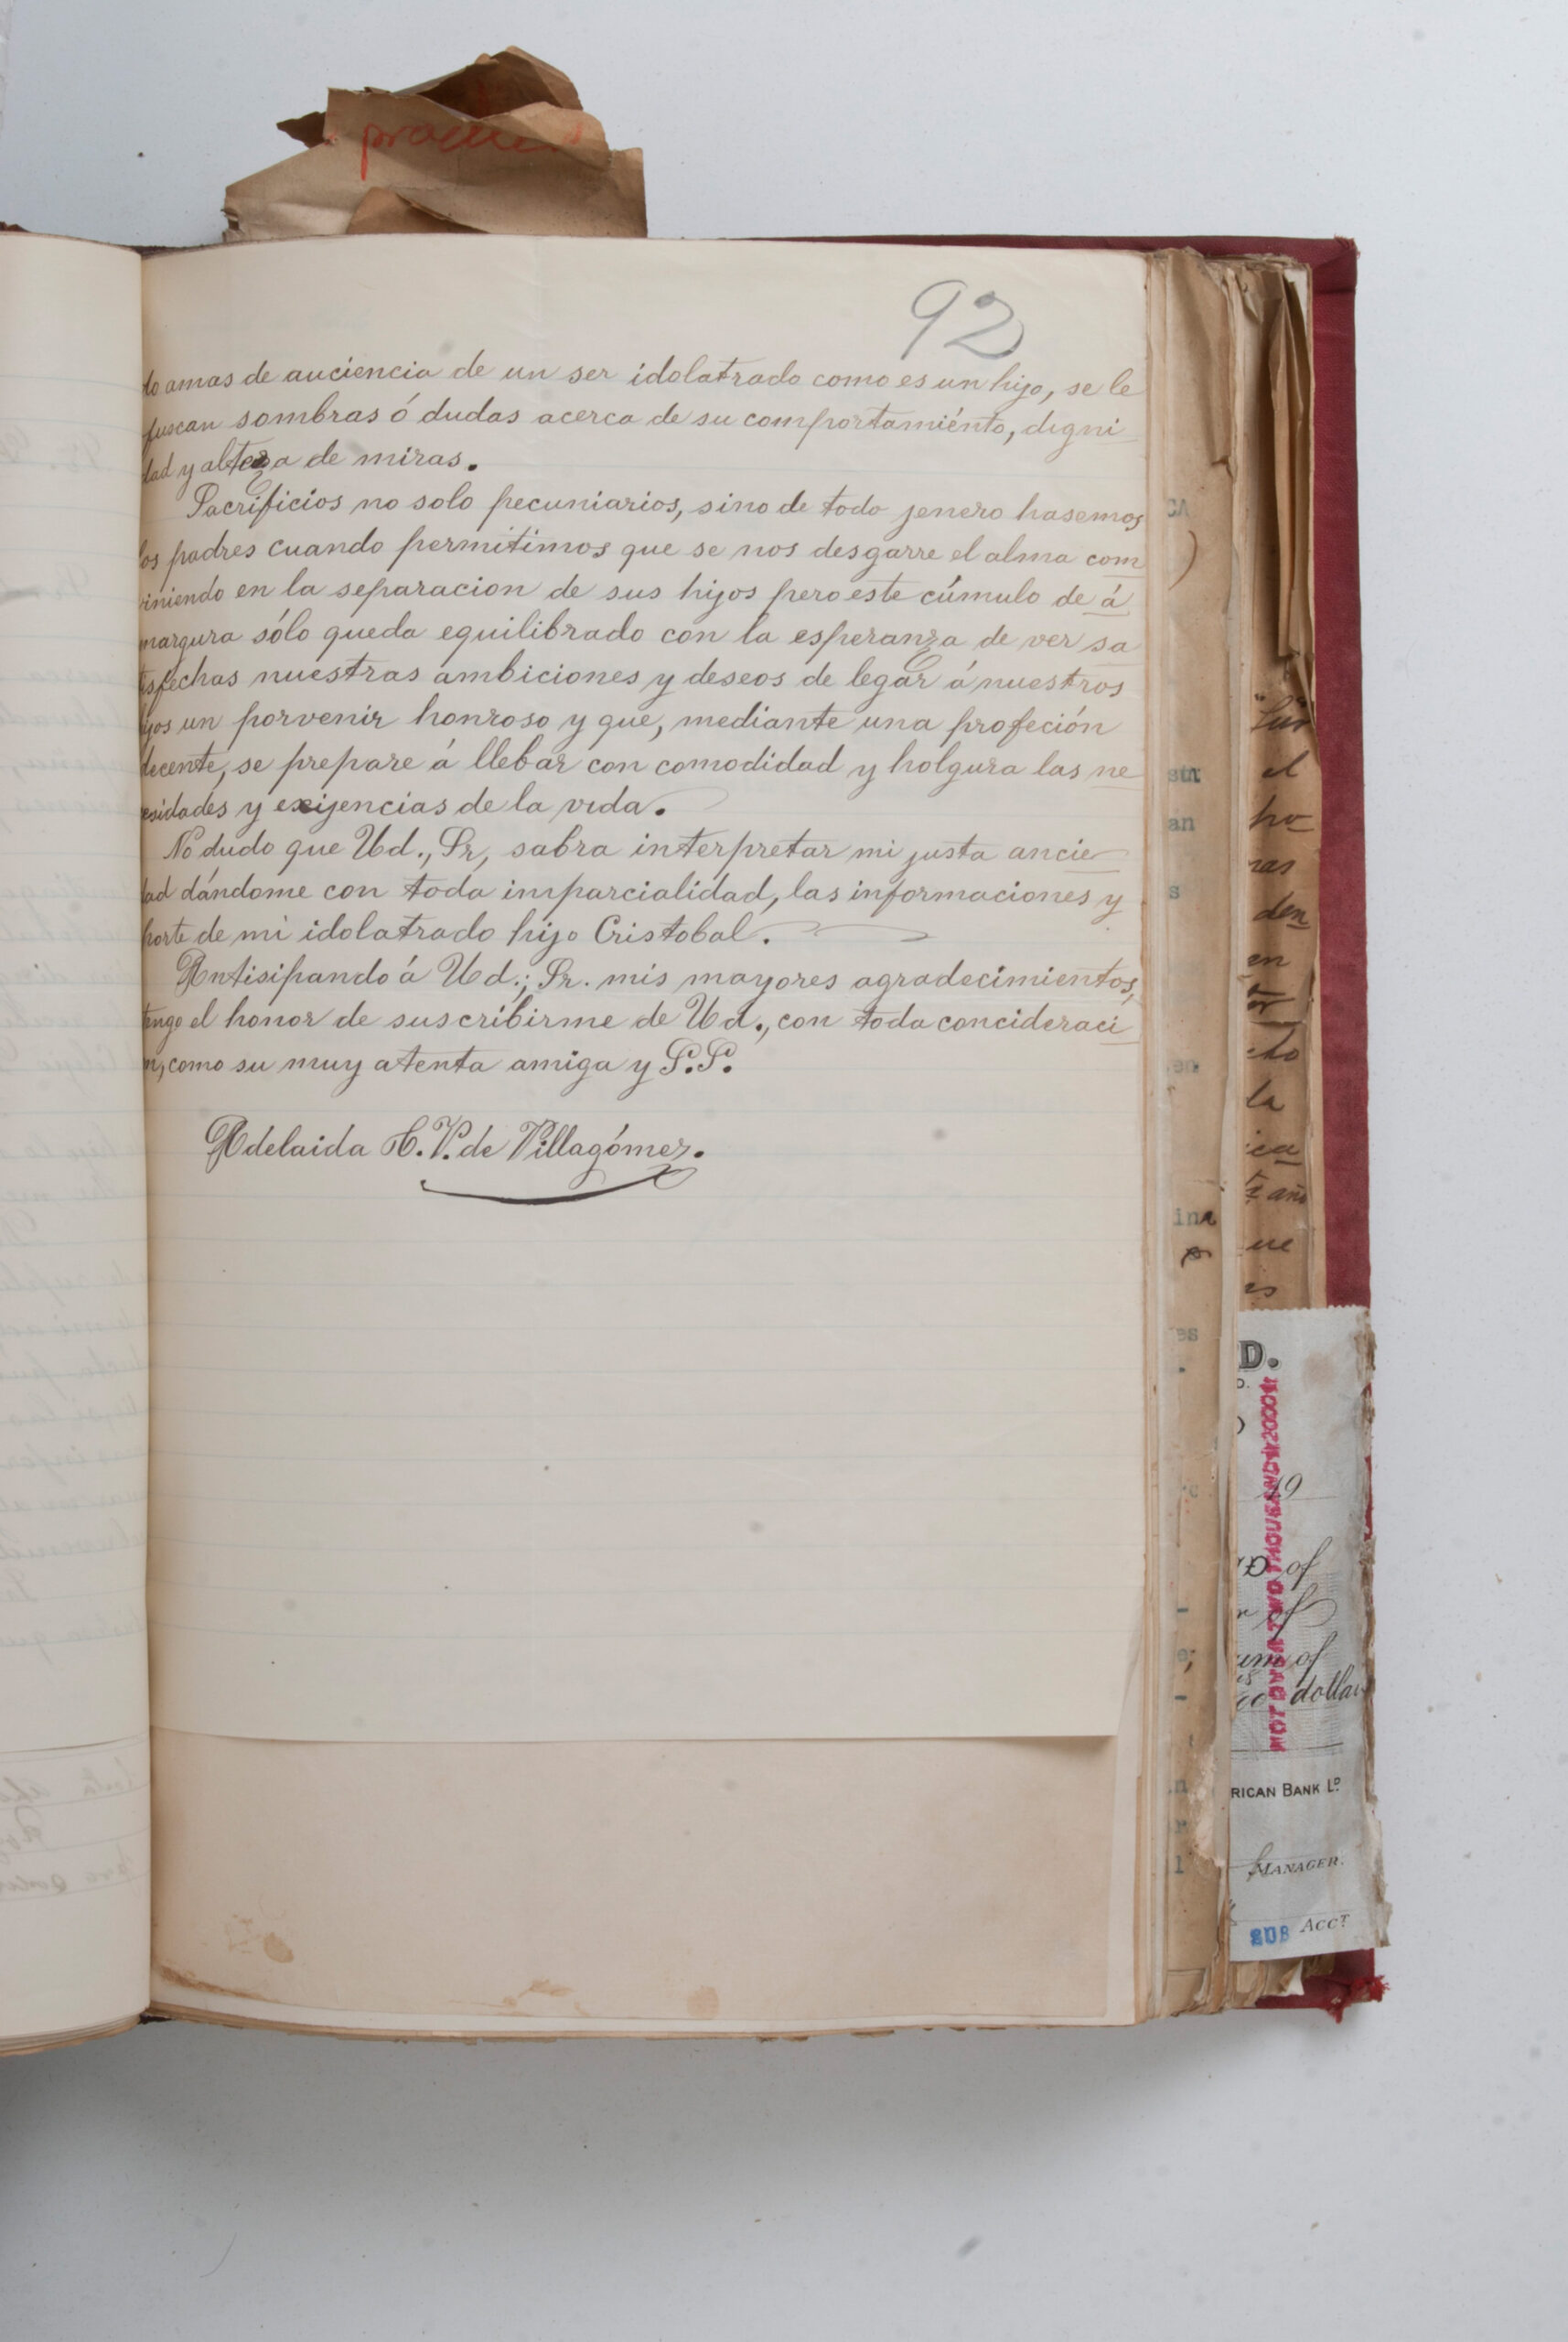 92
do amas de auciencia de un ser idolatrado como es un hijo, se le
fuscan sombras ó dudas acerca de su comportamiénto, digni
dad y alteza de miras.
Sacrificios no solo pecuniarios, sino de todo jenero hasemos
los padres cuando permitimos que se nos desgarre el alma com
viniendo en la separacion de sus hijos pero este cúmulo de á
margura sólo queda equilibrado con la esperanza de ver sa
tisfechas nuestras ambiciones y deseos de legar á nuestros
hijos un porvenir honroso y que, mediante una profeción
decente, se prepare á llebar con comodidad y holgura las ne
cesidades y exijencias de la vida.
No dudo que Ud., Sr, sabra interpretar mi justa ancie
dad dándome con toda imparcialidad, las informaciones y
porte de mi idolatrado hijo Cristobal.
Antisipando á Ud.; Sr. mis mayores agradecimientos,
tengo el honor de suscribirme de Ud., con toda concideraci
on, como su muy atenta amiga y S.S.
Adelaida H. V. de Villagómez.
D.
19
of
of
of
dollar
NOT OVER TWO THOUSAND $2000$
RICAN BANK Lᴰ
MANAGER.
SUB ACCT